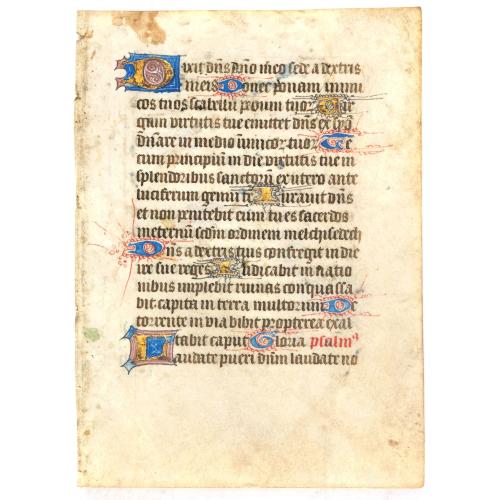 Dixit dñs dño meo sede a dextris
meis Donec ponam inimi
cos tuos scabellū pedum tuoꝝ Vir
gam virtutis tue emittet dñs ex syō
dñare in medio inimicoꝝ tuoꝝ Te
cum principiū in die virtutis tue in
splendoribus sanctorū ex utero ante
luciferum genui te Iurauit dñs
et non penitebit eum tu es sacerdos
in eternū scdm̄ ordinem melchisedech
Dñs a dextris tuis confregit in die
ire sue reges Iudicabit in natio
nibus implebit ruinas conquassa
bit capita in terra multorum De
torrente in via bibit propterea exal
tabit caput Gloria psalmꝰ
Laudate pueri dñm laudate no